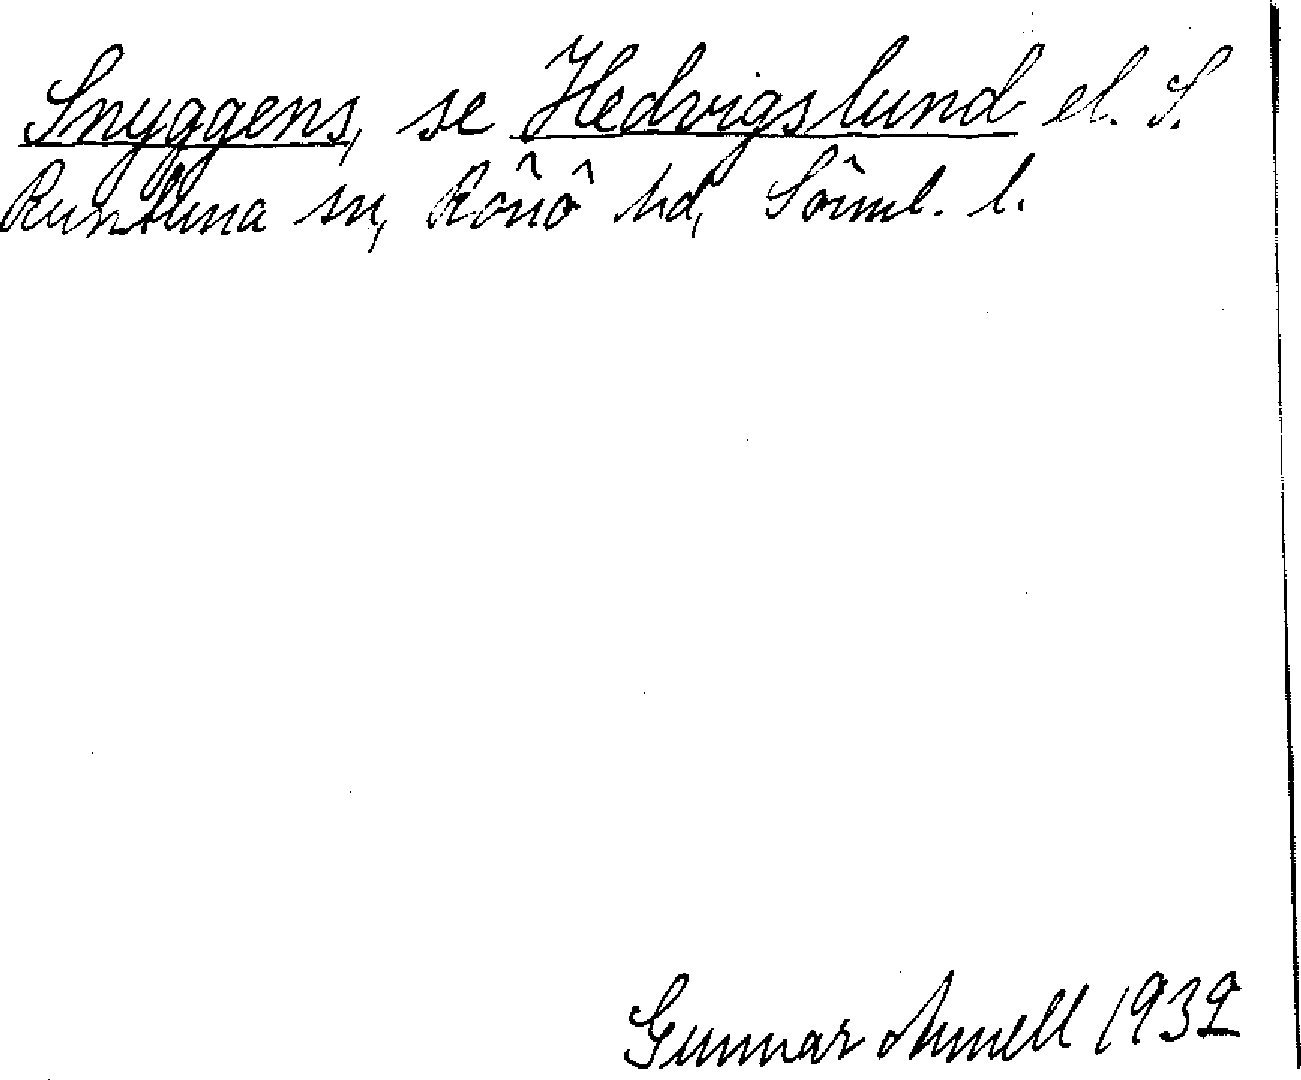 Snyggens, se Hedvigslund el. S.
Runtuna sn, Rönö hd, Sörml. l.
Gunnar Amnell 1932